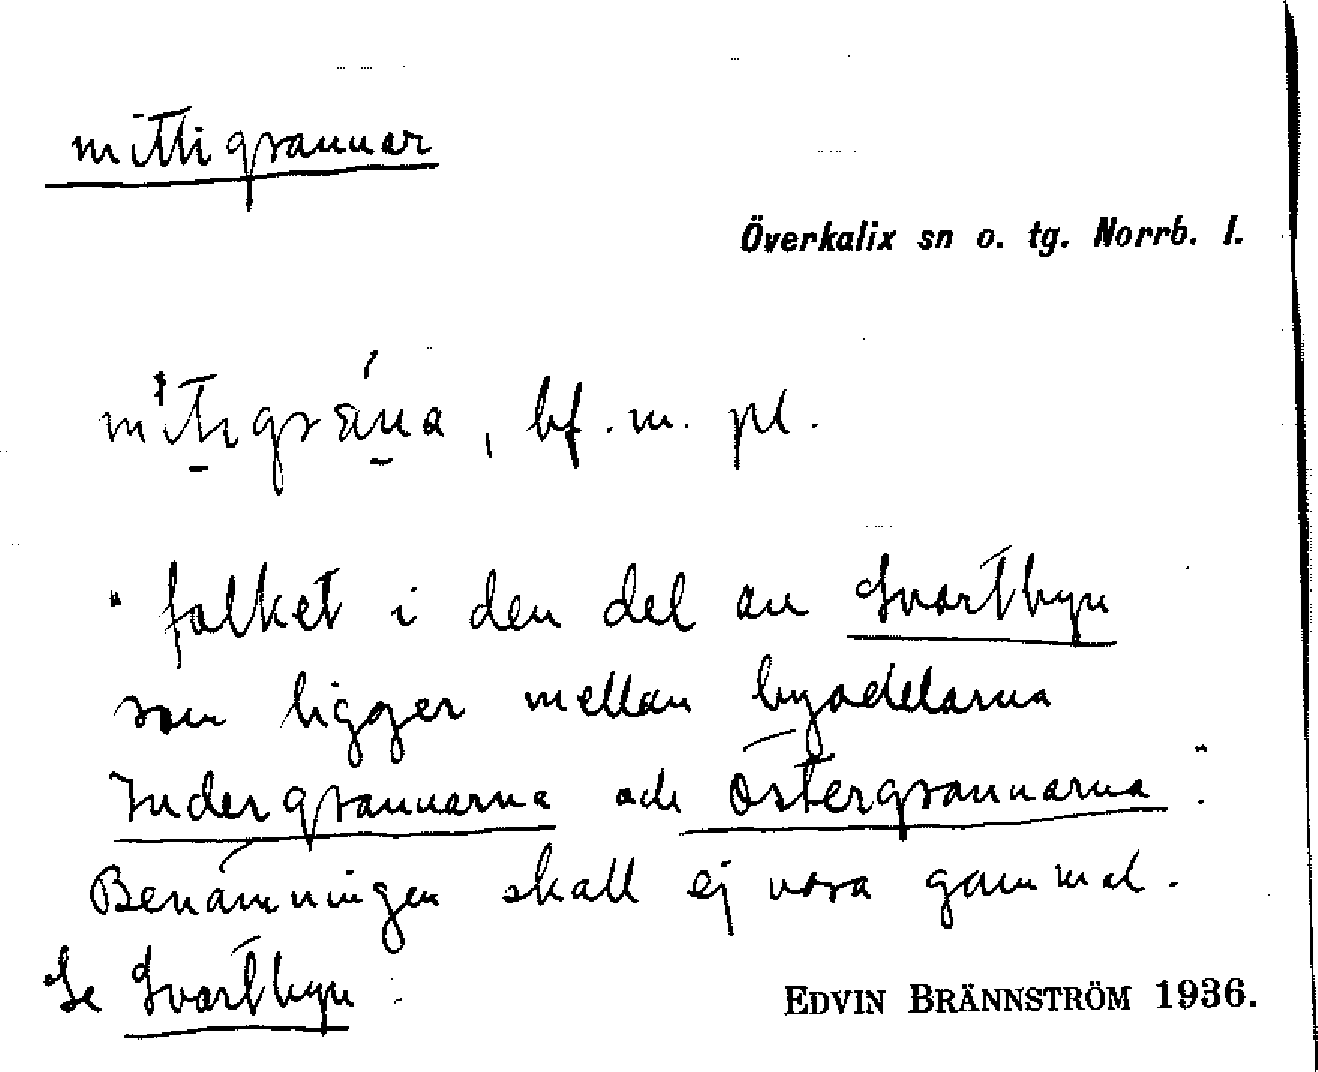 mittigrannar
Överkalix sn o. tg. Norrb. l.
bf. m. pl.
"folket i den del av Svartbyn
som ligger mellan byadelarna
Indergrannarna och Östergrannarna".
Benämningen skall ej vara gammal.
Se Svartbyn.
EDVIN BRÄNNSTRÖM 1936.